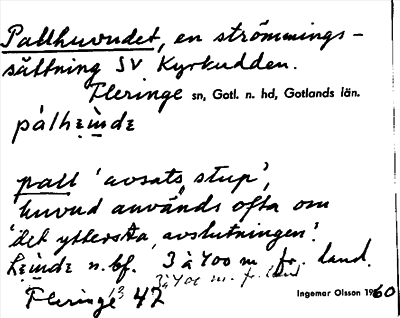 Pallhuvudet, en strömmings-
sättning SV Kyrkudden.
Fleringe sn, Gotl. n. hd, Gotlands län.
pálhęi̯ndę
pall 'avsats, stup',
huvud används ofta om
'det yttersta, avslutningen'.
hęi̯ndę n. bf. 3 à 400 m fr. land.
3 à 400 m. fr. land
Fleringe 42
Ingemar Olsson 1960